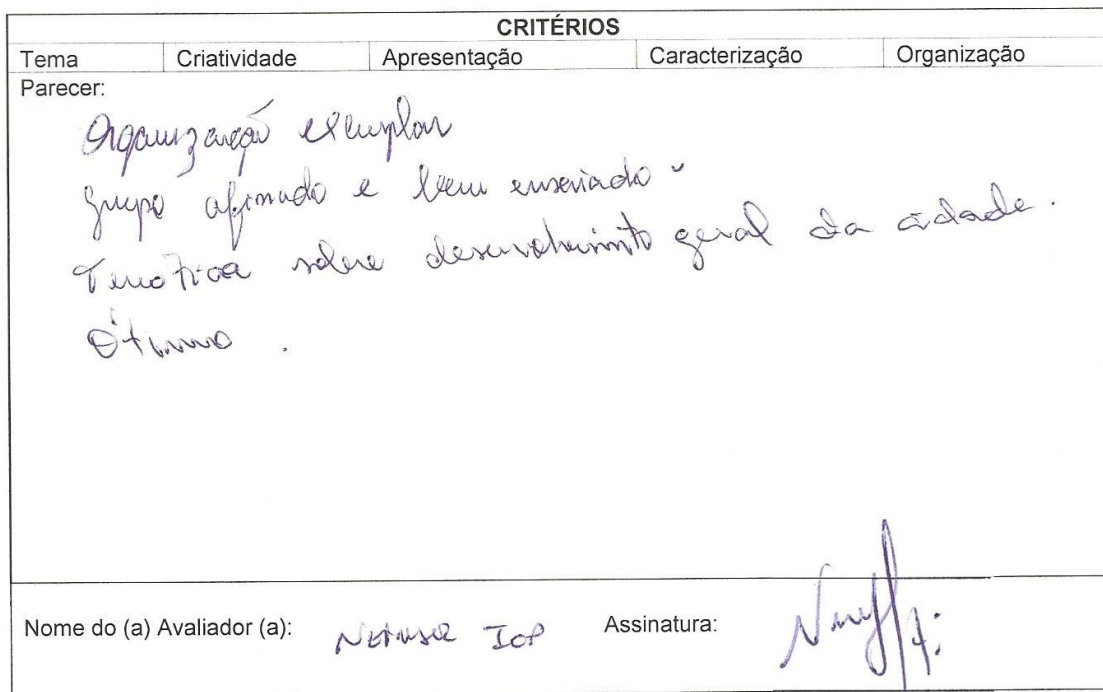 CRITÉRIOS
Tema Criatividade Apresentação Caracterização Organização
Parecer:
Organização exemplar
Grupo afinado e bem ensaiado
Temática sobre desenvolvimento geral da cidade.
Ótimo.
Nome do (a) Avaliador (a): Iop Assinatura: